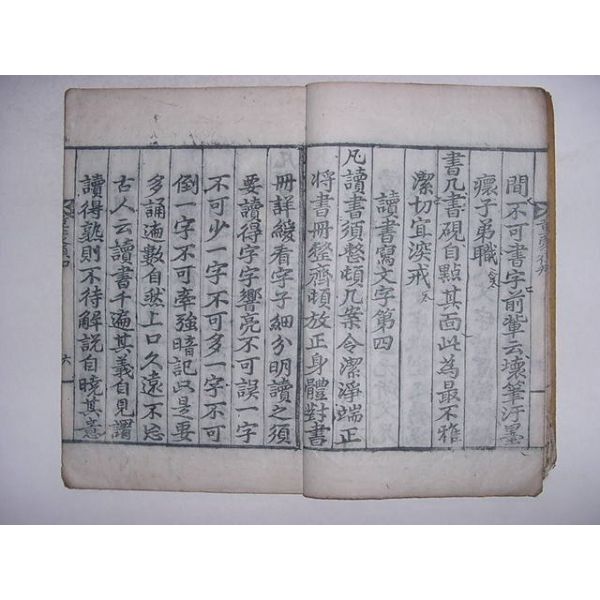 間不可書字前輩云壞筆汚墨
瘝子弟職
書几書硯自點其面此為最不雅
潔切宜深戒
讀書寫文字第四
凡讀書須整頓几案令潔淨端正
將書冊整齊頓放正身體對書
冊詳緩看字子細分明讀之須
要讀得字字響亮不可誤一字
不可少一字不可多一字不可
倒一字不可牽強暗記此是要
多誦遍數自然上口久遠不忘
古人云讀書千遍其義自見謂
讀得熟則不待解説自曉其意
六